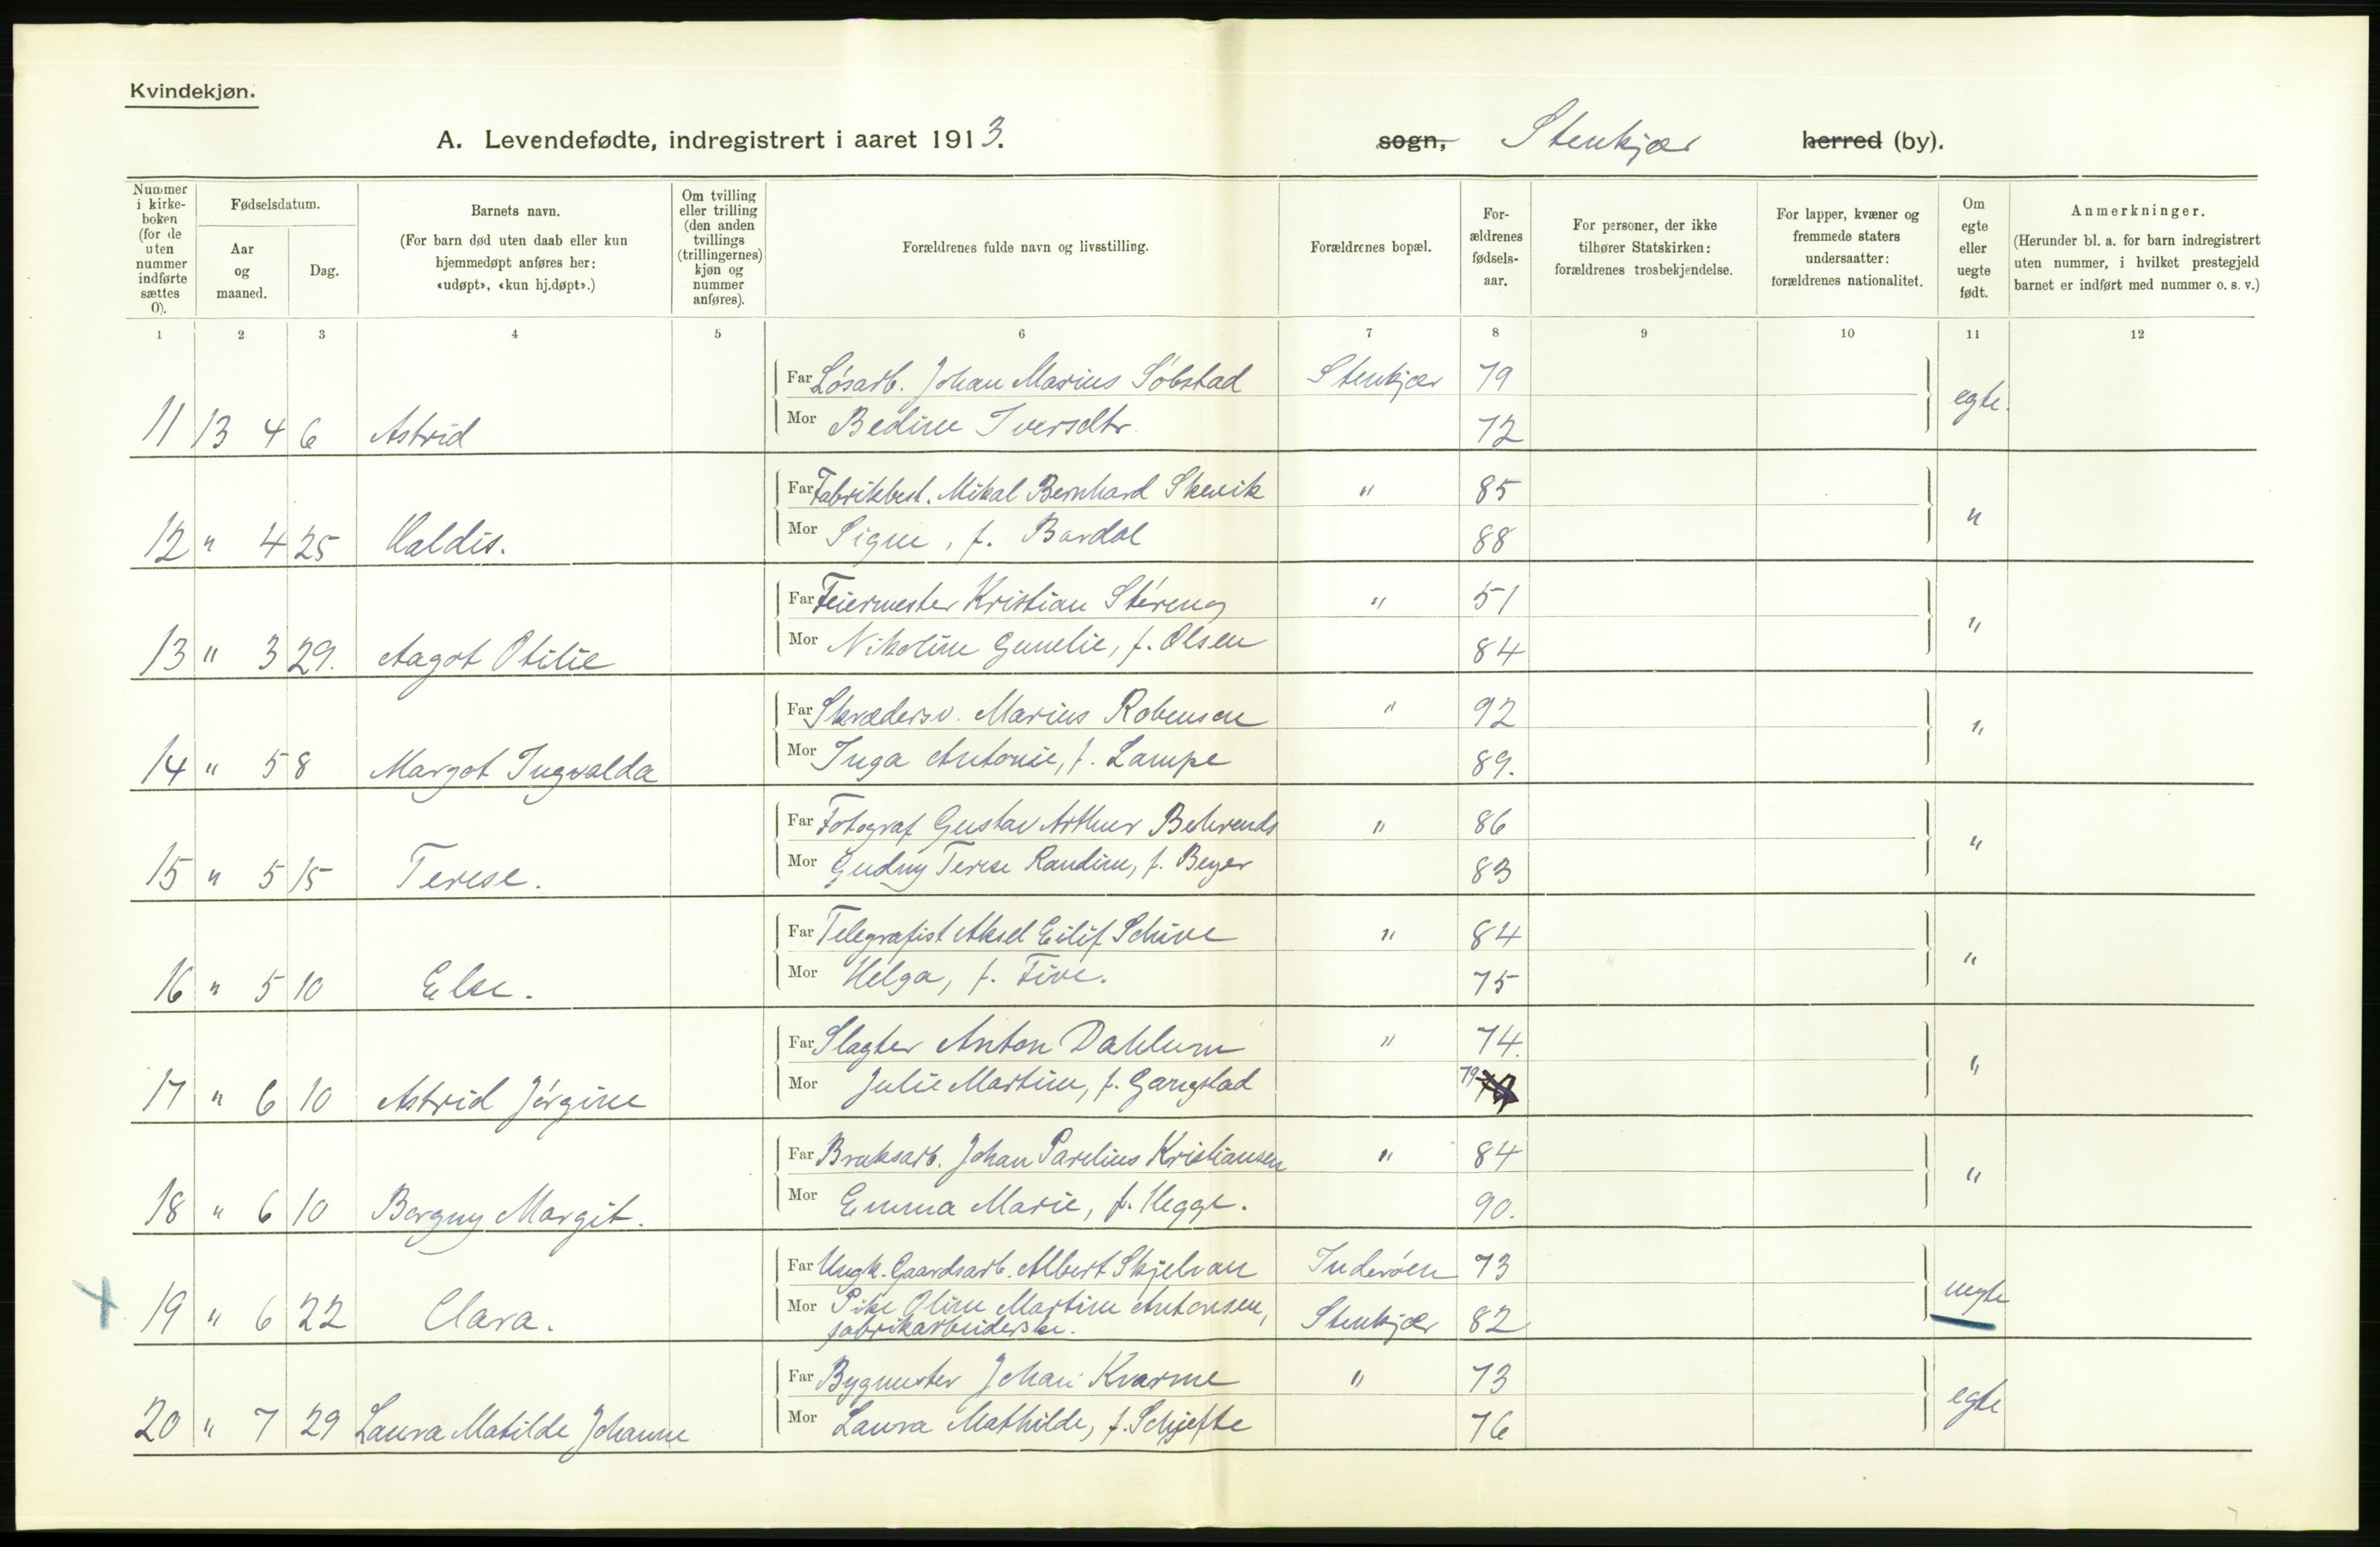 Kvindekjøn.
A. Levendefødte, indregistrert i aaret 1913. sogn, Stenkjær herred (by).
Nummer i kirke-boken (for de uten nummer indførte sættes 0).
Fødselsdatum.
Aar og maaned.
Dag.
Barnets navn.
(For barn død uten daab eller kun hjemmedøpt anføres her: «udøpt», «kun hj.døpt».)
Om tvilling eller trilling (den anden tvillings (trillingernes) kjøn og nummer anføres).
Forældrenes fulde navn og livsstilling.
Forældrenes bopæl.
For-ældrenes fødsels-aar.
For personer, der ikke tilhører Statskirken: forældrenes trosbekjendelse.
For lapper, kvæner og fremmede staters undersaatter: forældrenes nationalitet.
Om egte eller uegte født.
Anmerkninger.
(Herunder bl. a. for barn indregistrert uten nummer, i hvilket prestegjeld barnet er indført med nummer o. s. v.)
1 2 3 4 5 6 7 8 9 10 11 12
Far Løsarb. Johan Marius Søbstad Stenkjær 79
11 13 4 6 Astrid Mor Bedine Iversdtr. 72 egte.
Far Fabrikbest. Mikal Bernhard Skevik " 85
12 " 4 25 Valdis. Mor Signe, f. Bardal 88 "
Far Feiermester Kristian Støreng " 51
13 " 3 29. Aagot Otilie Mor Nikoline Gunelie, f. Olsen 84 "
Far Skrædersv. Marius Robensen " 92
14 " 5 8 Margot Ingvalda Mor Inga Antonie, f. Lampe 89. "
Far Fotograf Gustav Arthur Behrends " 86
15 " 5 15 Terese. Mor Gudny Terese Randine, f. Beyer 83 "
Far Telegrafist Aksel Eilif Schive " 84
16 " 5 10 Else. Mor Helga, f. Five. 75 "
Far Slagter Anton Dahlum " 74.
17 " 6 10 Astrid Jørgine Mor Julie Martine, f. Gangstad 79 "
Far Bruksarb. Johan Parelius Kristiansen " 84
18 " 6 10 Borgny Margit. Mor Emma Marie, f. Hegge. 90. "
Far Ungk. Gaardsarb. Albert Skjelvan Inderøen 73
19 " 6 22 Clara. Mor Pike Oline Martine Antonsen, Stenkjær 82 uegte
fabrikarbeiderske.
Far Bygmester Johan Kvarme " 73
20 " 7 29 Laura Matilde Johanne Mor Laura Mathilde, f. Schjefte 76 egte